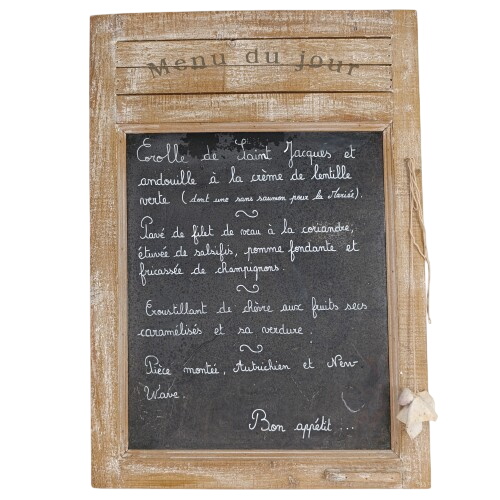 Menu du jour
Erolle de Saint Jacques et
andouille à la crème de lentille
verte (dont une sans saumon pour la Mariée).
Pavé de filet de veau à la coriandre,
étuvée de salsifis, pomme fondante et
fricassée de champignons.
Croustillant de chèvre aux fruits secs
caramélisés et sa verdure.
Pièce montée, Autrichien et New-
Wave.
Bon appétit ...